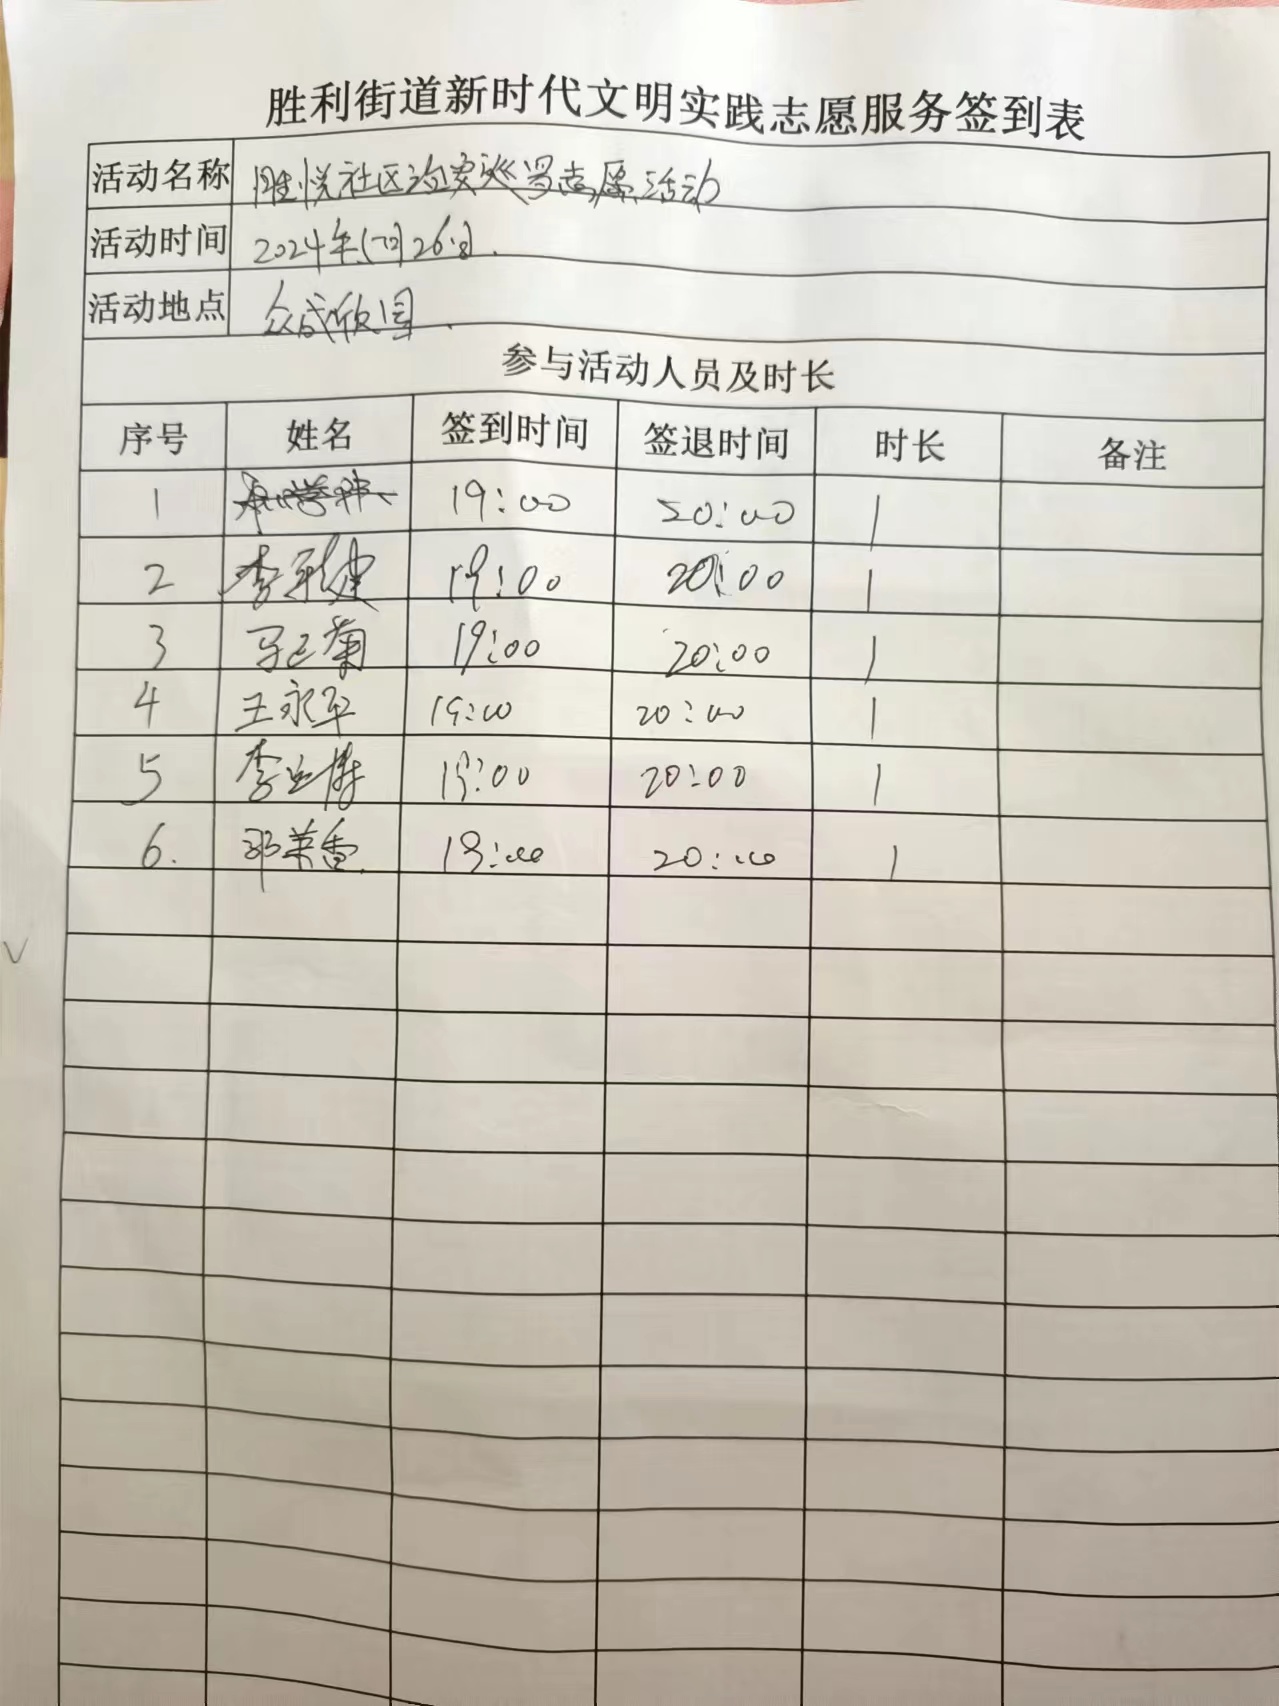 胜利街道新时代文明实践志愿服务签到表
活动名称 胜悦社区治安巡逻志愿活动
活动时间 2024年 26日.
活动地点 众成欣园.
参与活动人员及时长
序号 姓名 签到时间 签退时间 时长 备注
1 19:00 20:00 1
2 李 建 19:00 20:00 1
3 马 菊 19:00 20:00 1
4 王永平 19:00 20:00 1
5 李 19:00 20:00 1
6. 邓荣香. 19:00 20:00 1